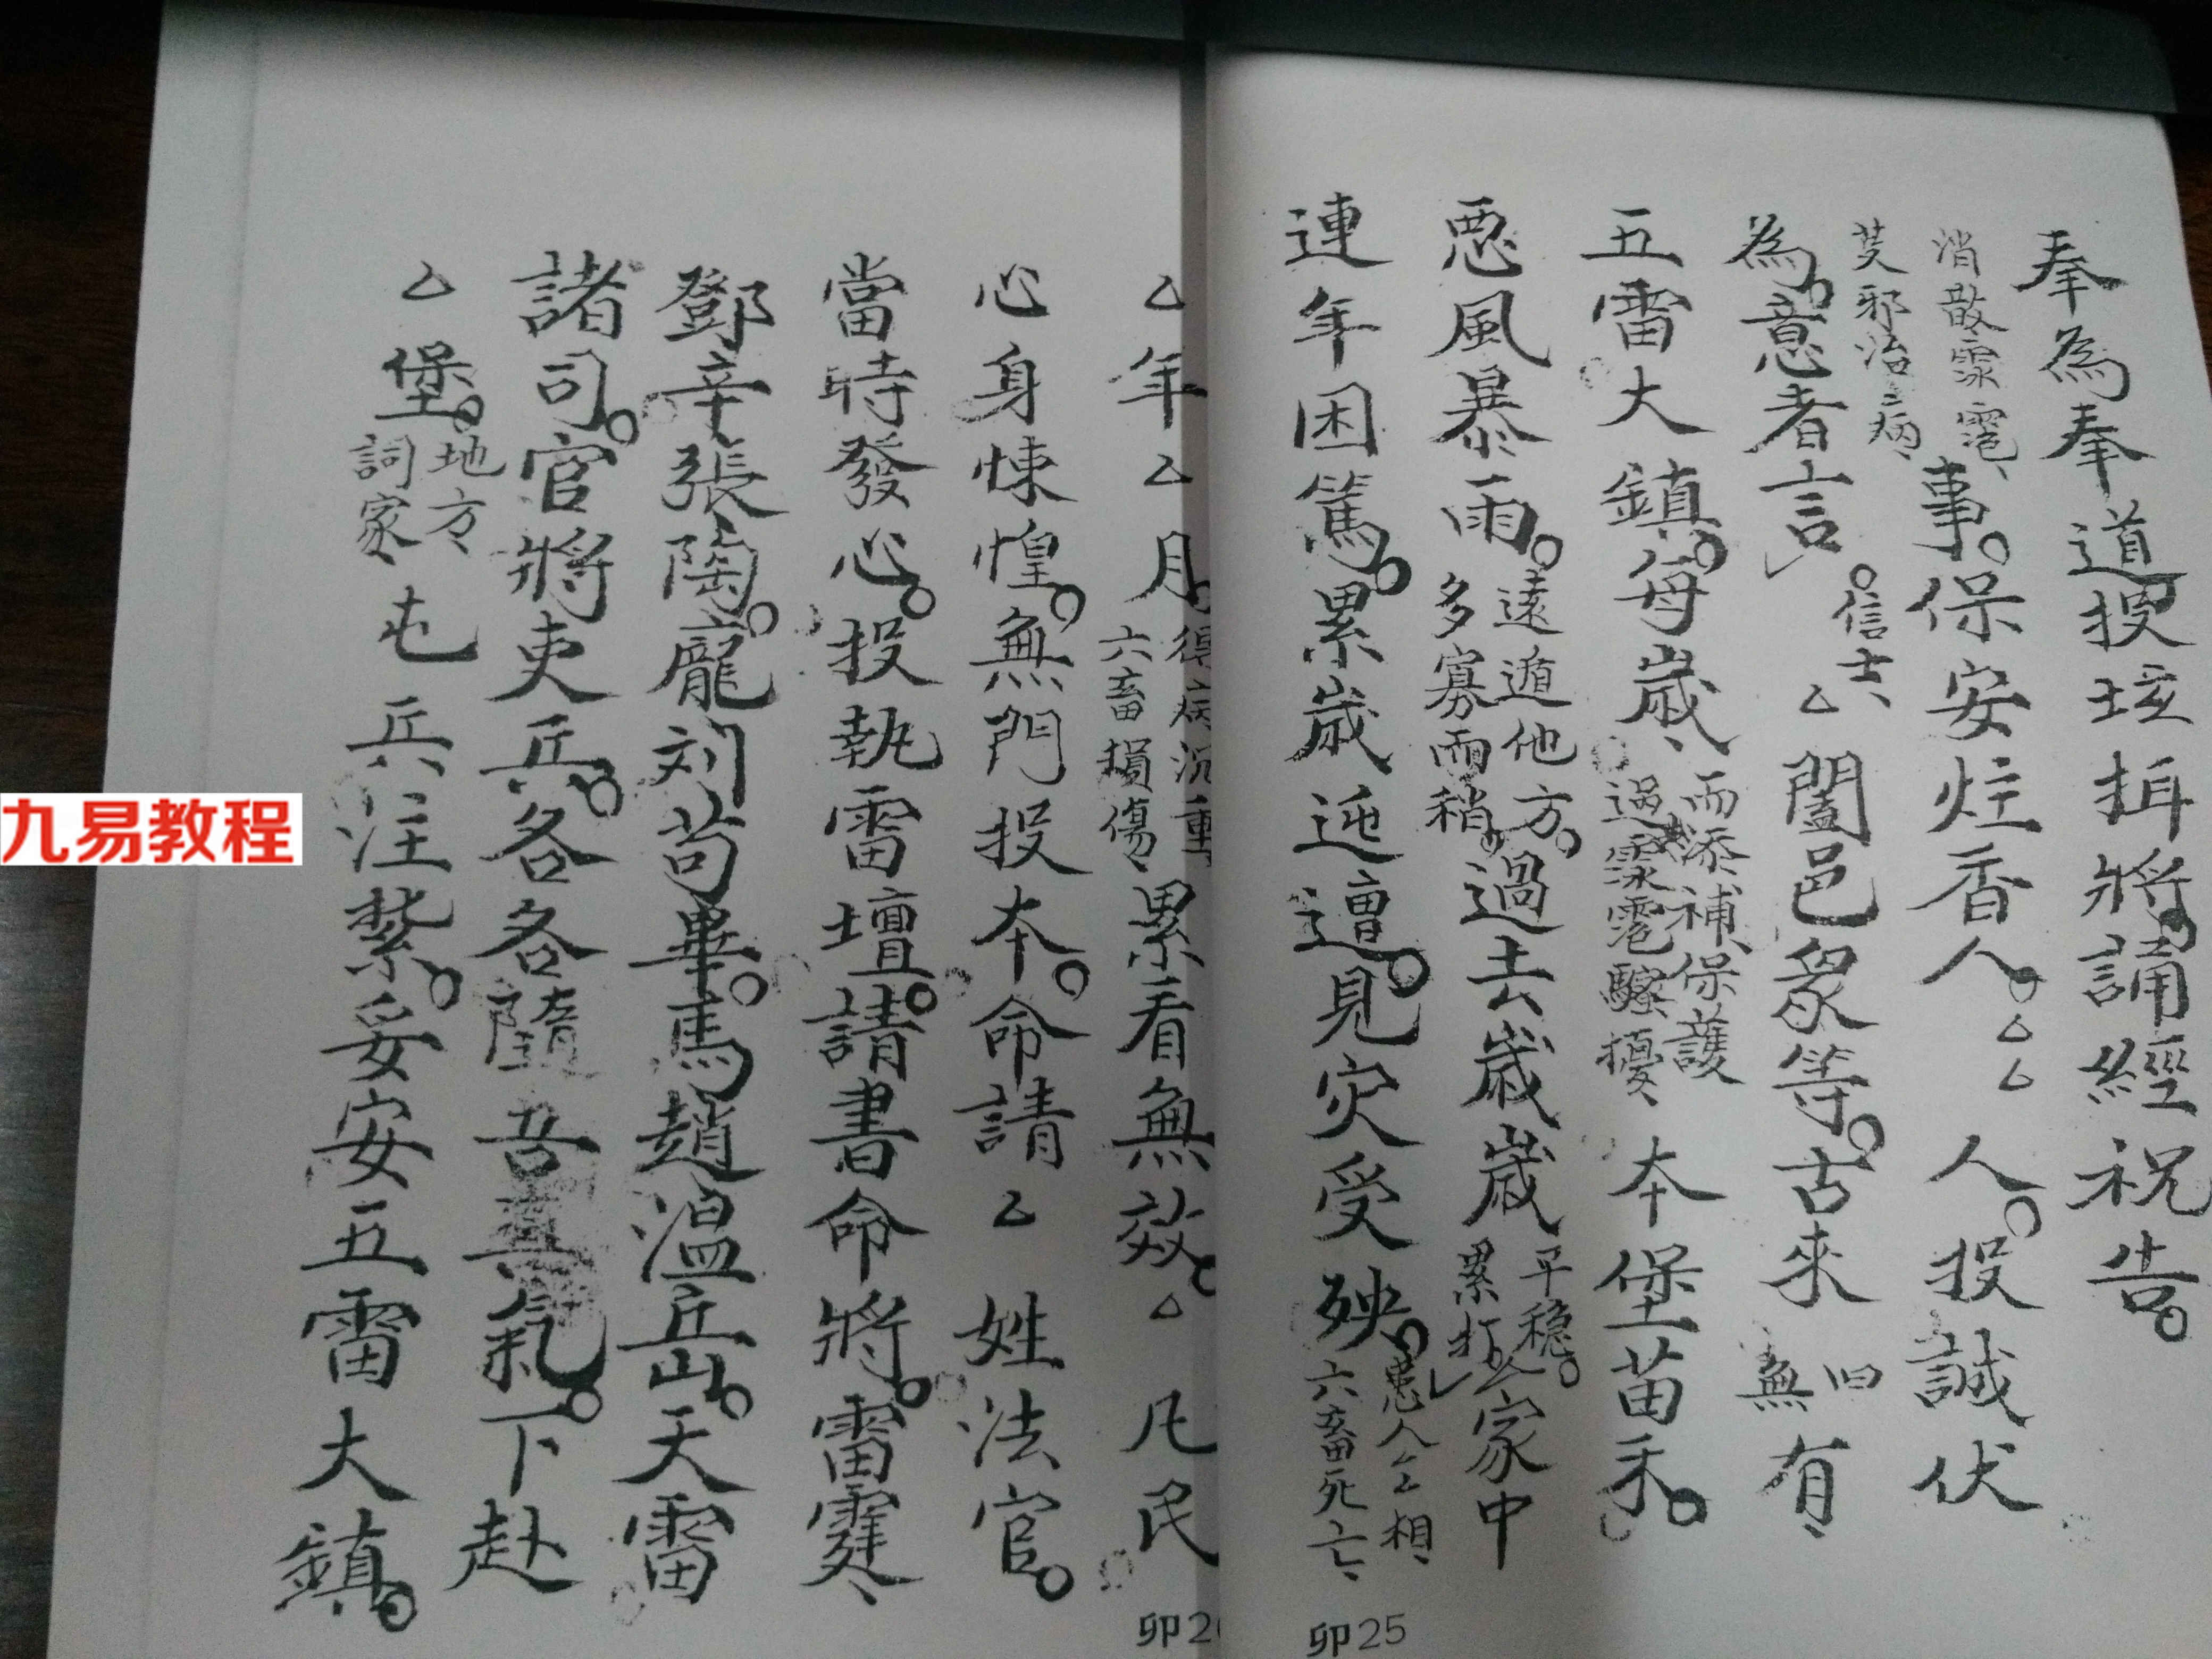 奉為奉道投坛揖將誦經祝告。
消散霐雹、
芟邪治病、
事。保安炷香人。厶厶人。投誠伏
為。意者言。信士、厶闔邑衆等。古來
旧
無
有、
五雷大鎮。每歲、
而添補、保護
過霐雹騷擾、
本堡苗禾。
惡風暴雨。
遠遁他方。
多寡而稍。
過去歲歲
平穩。
累打
厶家中
連年困篤。累歲迍遭。見灾受殃。
患人厶相、
六畜死亡、
卯25
厶年厶月。
得病沉重、
六畜損傷、
累看無效。厶凡民
心身悚惶。無門投本。命請厶姓法官。
當時發心。投執雷壇。請書命將。雷霆、
鄧辛張陶。龐刘苟畢。馬趙温岳。天雷
諸司。官將吏兵。各各隨吾真氣。下赴
厶堡。
地方、
詞家、
屯兵注紮。妥安五雷大鎮。
卯2
九易教程